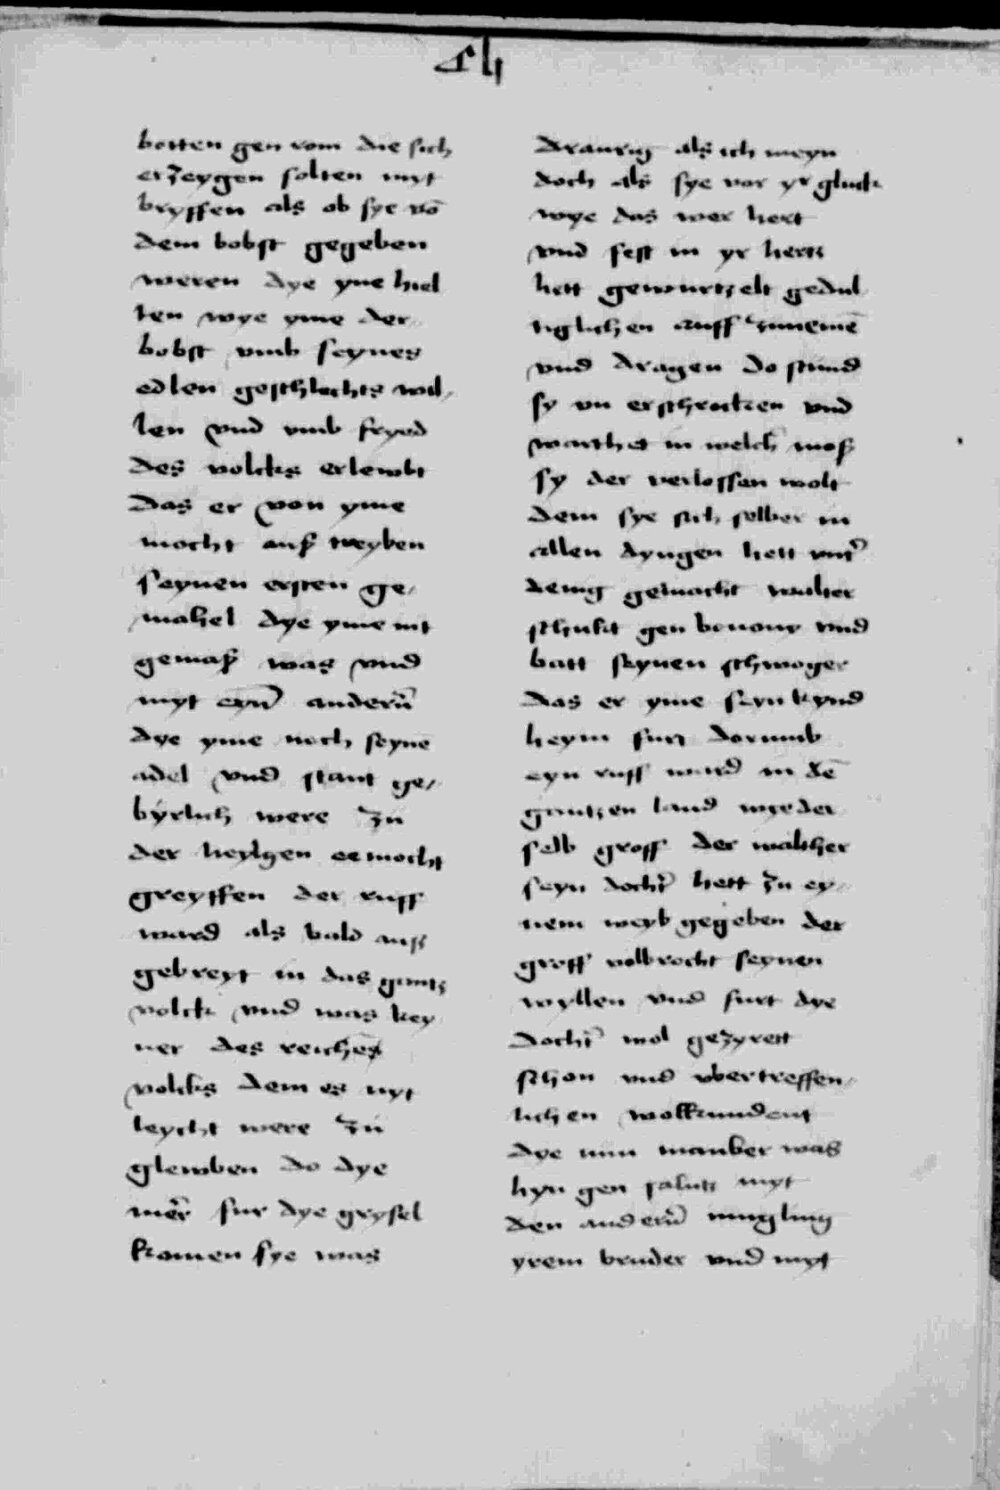 botten gen rom die sich
erzeygen solten myt
bryffen als ob sye vō
dem bobst gegeben
weren dye yne hiel
ten wye yme der
bobst vmb seynes
edlen geschlechts wil/
len vnd vmb fryed
des volcks erlewbt
das er von yme
mocht auß treyben
seynen ersten ge/
mahel dye yme nit
gemaß was vnd
myt eyn̄ anderñ
dye yme noch seynē
adel vnd stant ge/
byrlich were zu
der heylgen ee mocht
greyffen der ruff
ward als bald auß
gebreyt in das gantz
volck vnd was key
ner des reichēs
volcks dem es nyt
leycht were zu
glewben do dye
mer̄ fur dye grysel
komen sye was
draurig als ich meyn
doch als sye vor yr gluck
wye das wer hert
vnd fest in yr hertz
hett gewurtzelt gedul
tiglichen auff zunemē
vnd dragen do stund
sy vn erschrocken vnd
warthet in welch̄ moß
sy der verlossen wolt
dem sye sich selber in
allen dyngen hett vnt̄
denig gemacht walter
schickt gen bonony vnd
batt seynen schwoger
das er yme seyn kynd
heym furt dorumb
eyn ruff ward in dē
gantzen land wyeder
selb groff der walther
seyn docht̄ hett zu ey/
nem weyb gegeben der
groff volbrocht seynen
wyllen vnd furt dye
docht̄ wol gezyrett
schon vnd vbertreffen/
lichen wolkundent
dye nun manber was
hyn gen salutz myt
den anderñ iungling
yrem bruder vnd myt